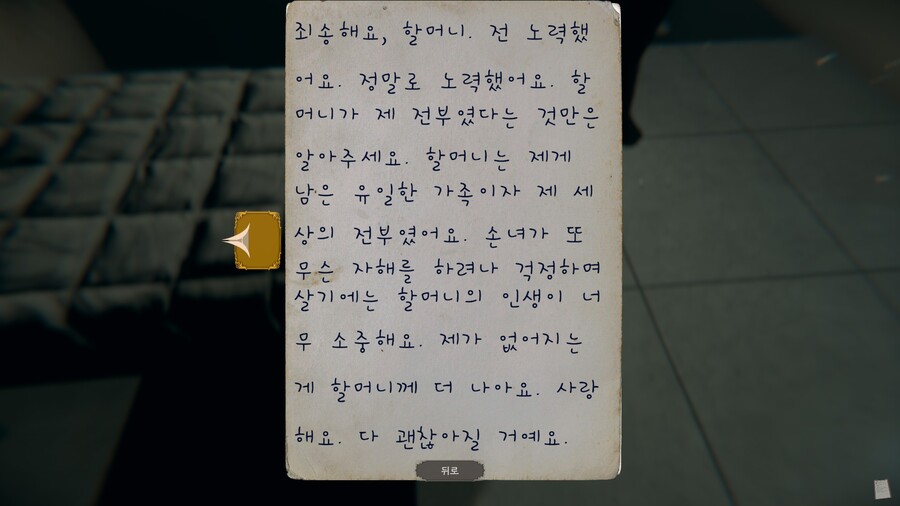 죄송해요, 할머니. 전 노력했
어요. 정말로 노력했어요. 할
머니가 제 전부였다는 것만은
알아주세요. 할머니는 제게
남은 유일한 가족이자 제 세
상의 전부였어요. 손녀가 또
무슨 자해를 하려나 걱정하며
살기에는 할머니의 인생이 너
무 소중해요. 제가 없어지는
게 할머니께 더 나아요. 사랑
해요. 다 괜찮아질 거예요.
뒤로